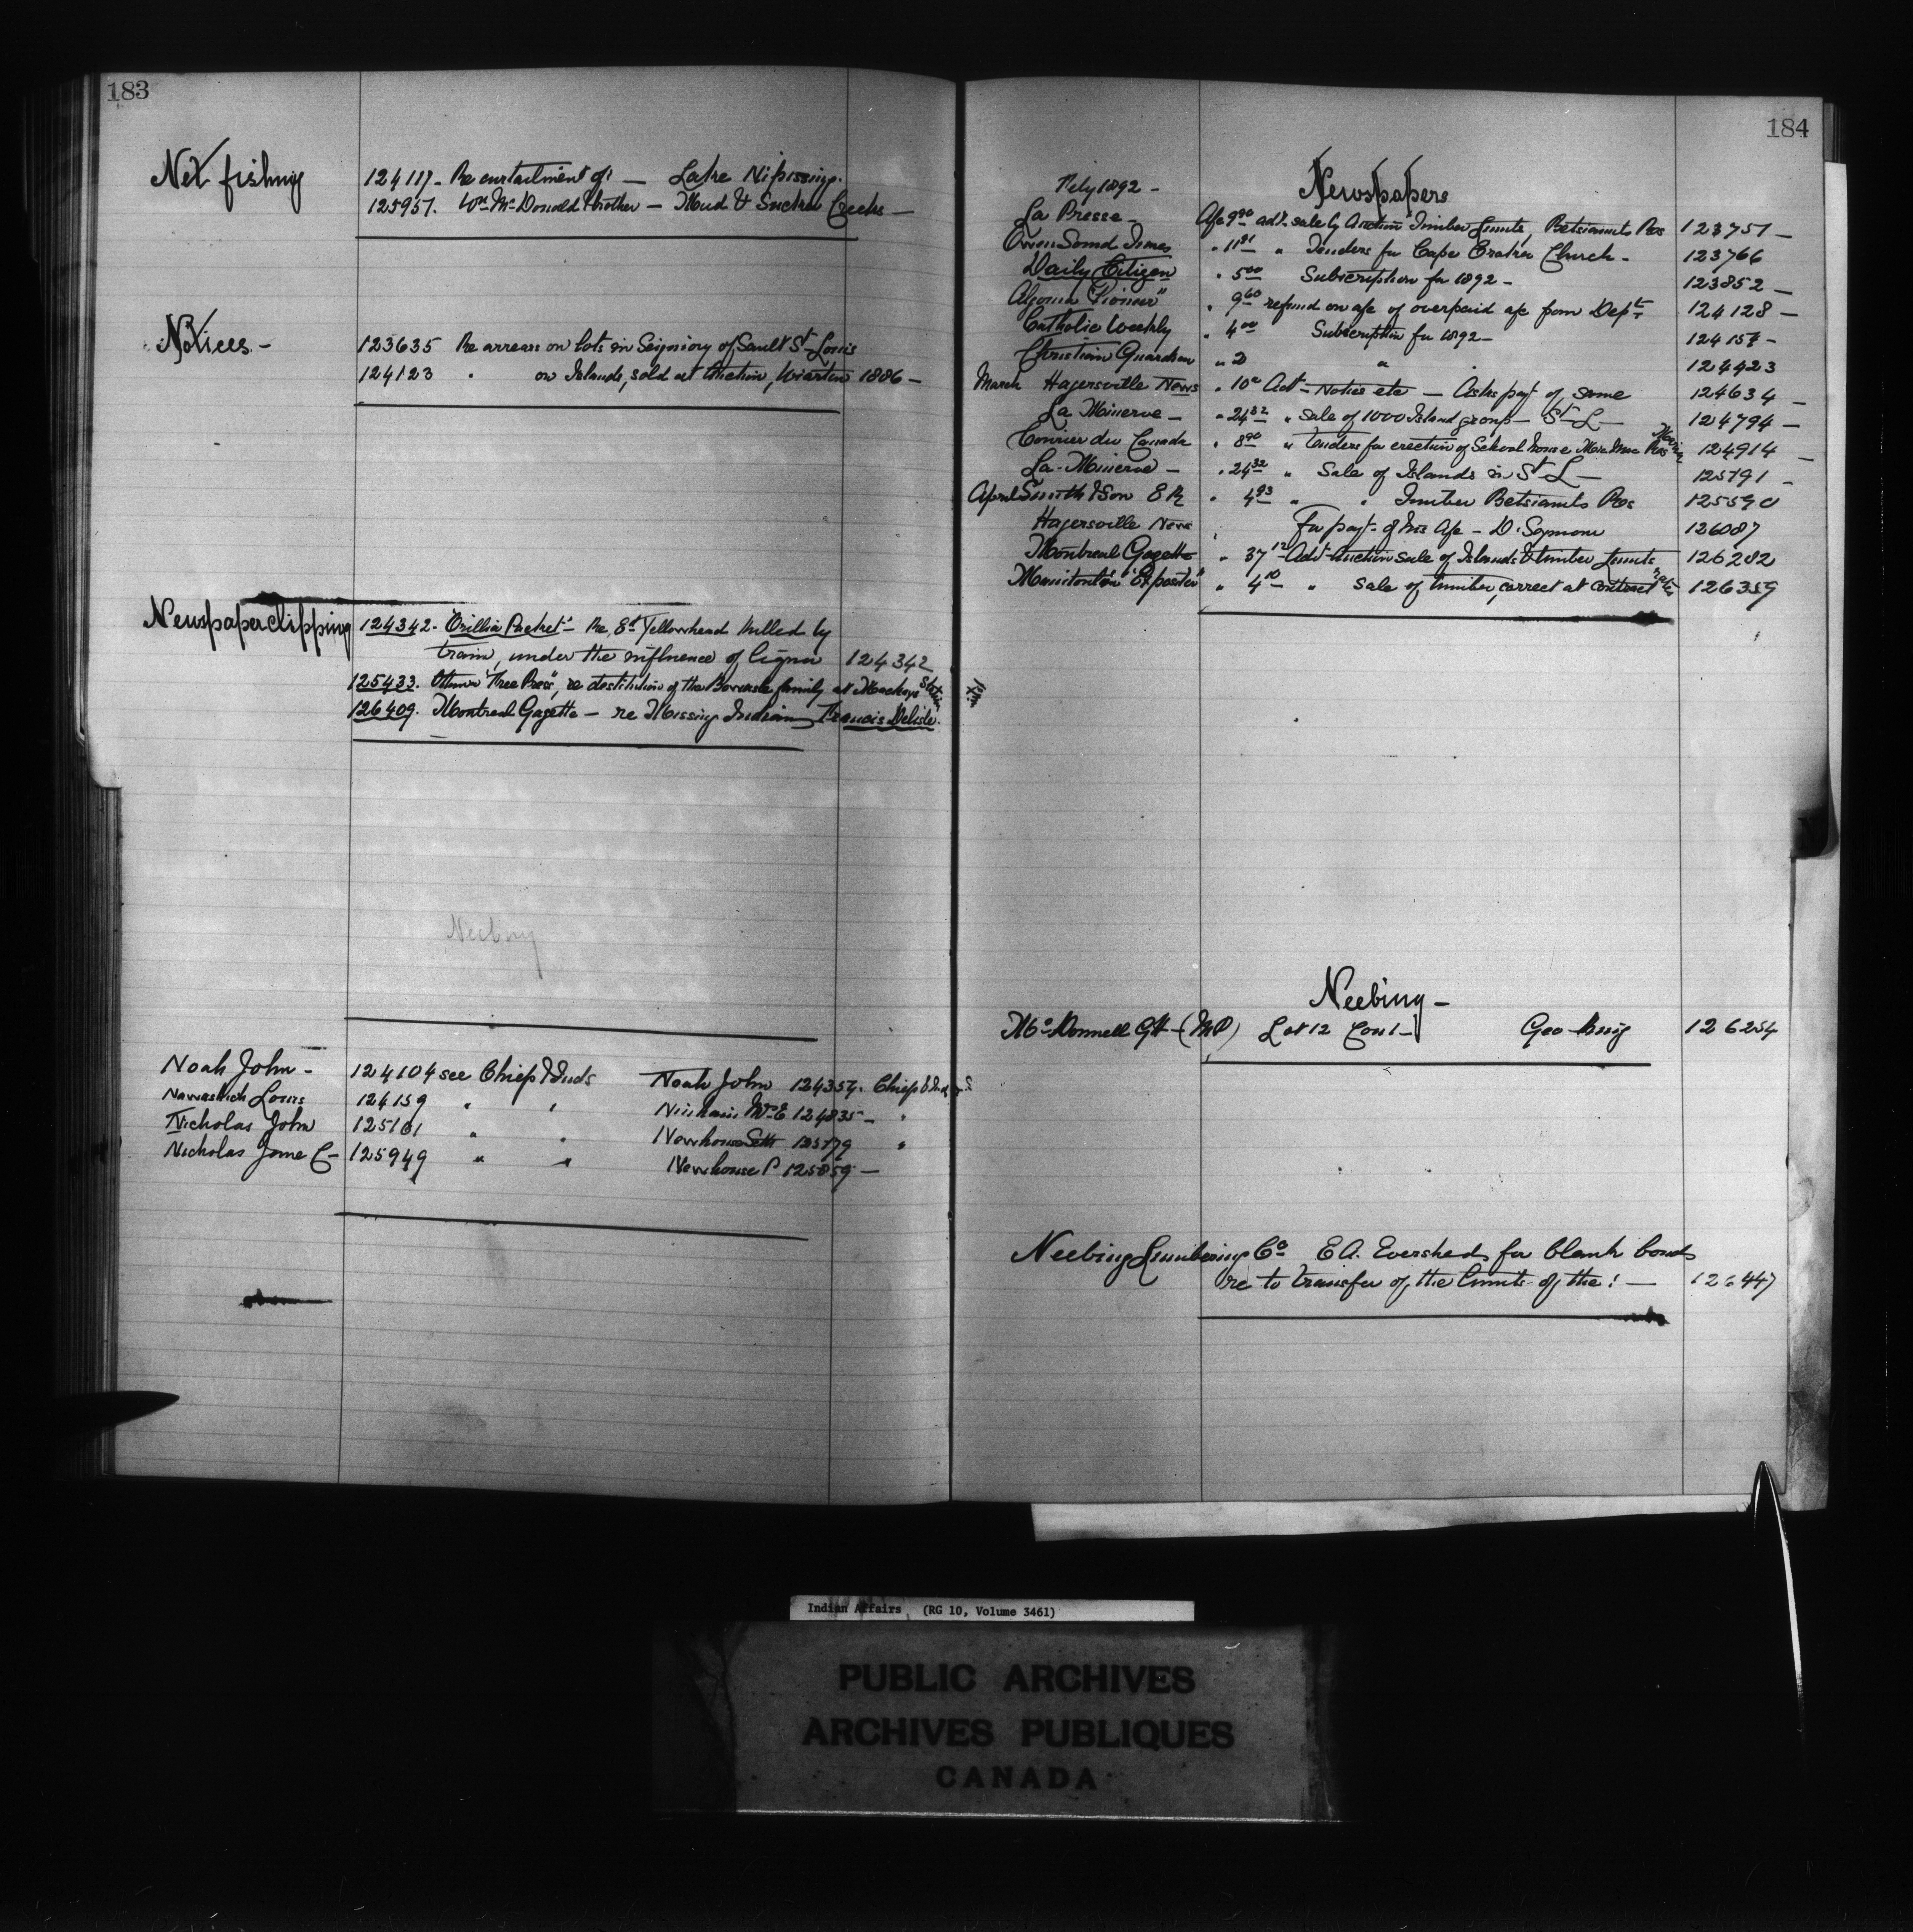 183
Net fishing
124117- Re curtailment of! — Lake Nipissing.
125957. Wm McDonald & brother — Mud & Sucker Creeks —
Notices -
123635 Re arrears on lots in Seigniory of Sault St Louis
124123 " on Islands, sold at Auction, Wiarton 1886 —
Newspaper clipping
124342. "Orillia Packet" - Re, Ed Yellowhead killed by
train, under the influence of liquor 124342
125433. Ottawa "Free Press", re destitution of the family at Mackeys Station
126409. Montreal Gazette — re Missing Indian Francis Delisle.
Neebing
Noah John - 124104 see Chiefs & Inds Noah John 124354. Chiefs & Inds
Nawashish Louis 124159 " " 124835 — "
Nicholas John 125161 " " Newhouse Seth 125779 "
Nicholas C — 125949 " " Newhouse P 125859 —
184
Feby 1892 - Newspapers
La Presse - A/c 9.90 advt. sale by Auction Timber Limits, Betsiamits Res 123751 —
Owen Sound Times " 11.91 " Tenders for Cape Croker Church - 123766
Daily Citizen " 5.00 Subscription for 1892 - 123852 —
Algoma "Pioneer" " 9.60 refund on a/c of overpaid a/c from Dept 124128 —
Catholic Weekly " 4.00 Subscription for 1892 - 124157 -
Christian Guardian " 2 " " 124423
March Hagersville News " 10c Advt - Notice etc — Asks payt of same 124634 —
La Minerve — " 24.32 " sale of 1000 Island group — St L — 124794 —
Courier du Canada " 8.90 " Tenders for erection of School house Maria Res 124914 —
La Minerve — " 24.32 " Sale of Islands in St L — 125191 -
April Smith & Son E R " 4.93 " " Timber Betsiamits Res 125590
Hagersville News " For payt of his a/c — D. Seymour 126087
Montreal Gazette " 37.12 Advt Auction sale of Islands & timber Limits 126282
Manitoulin "Expositor" " 4.10 " sale of timber, correct at contract rates 126359
Neebing —
McDonnell G H — (MP) Lot 12 Con 1 — Geo King 126254
Neebing Lumbering Co E A. Evershed for blank bonds
re to transfer of the limits of the! — 126447
Indian Affairs (RG 10, Volume 3461)
PUBLIC ARCHIVES
ARCHIVES PUBLIQUES
CANADA